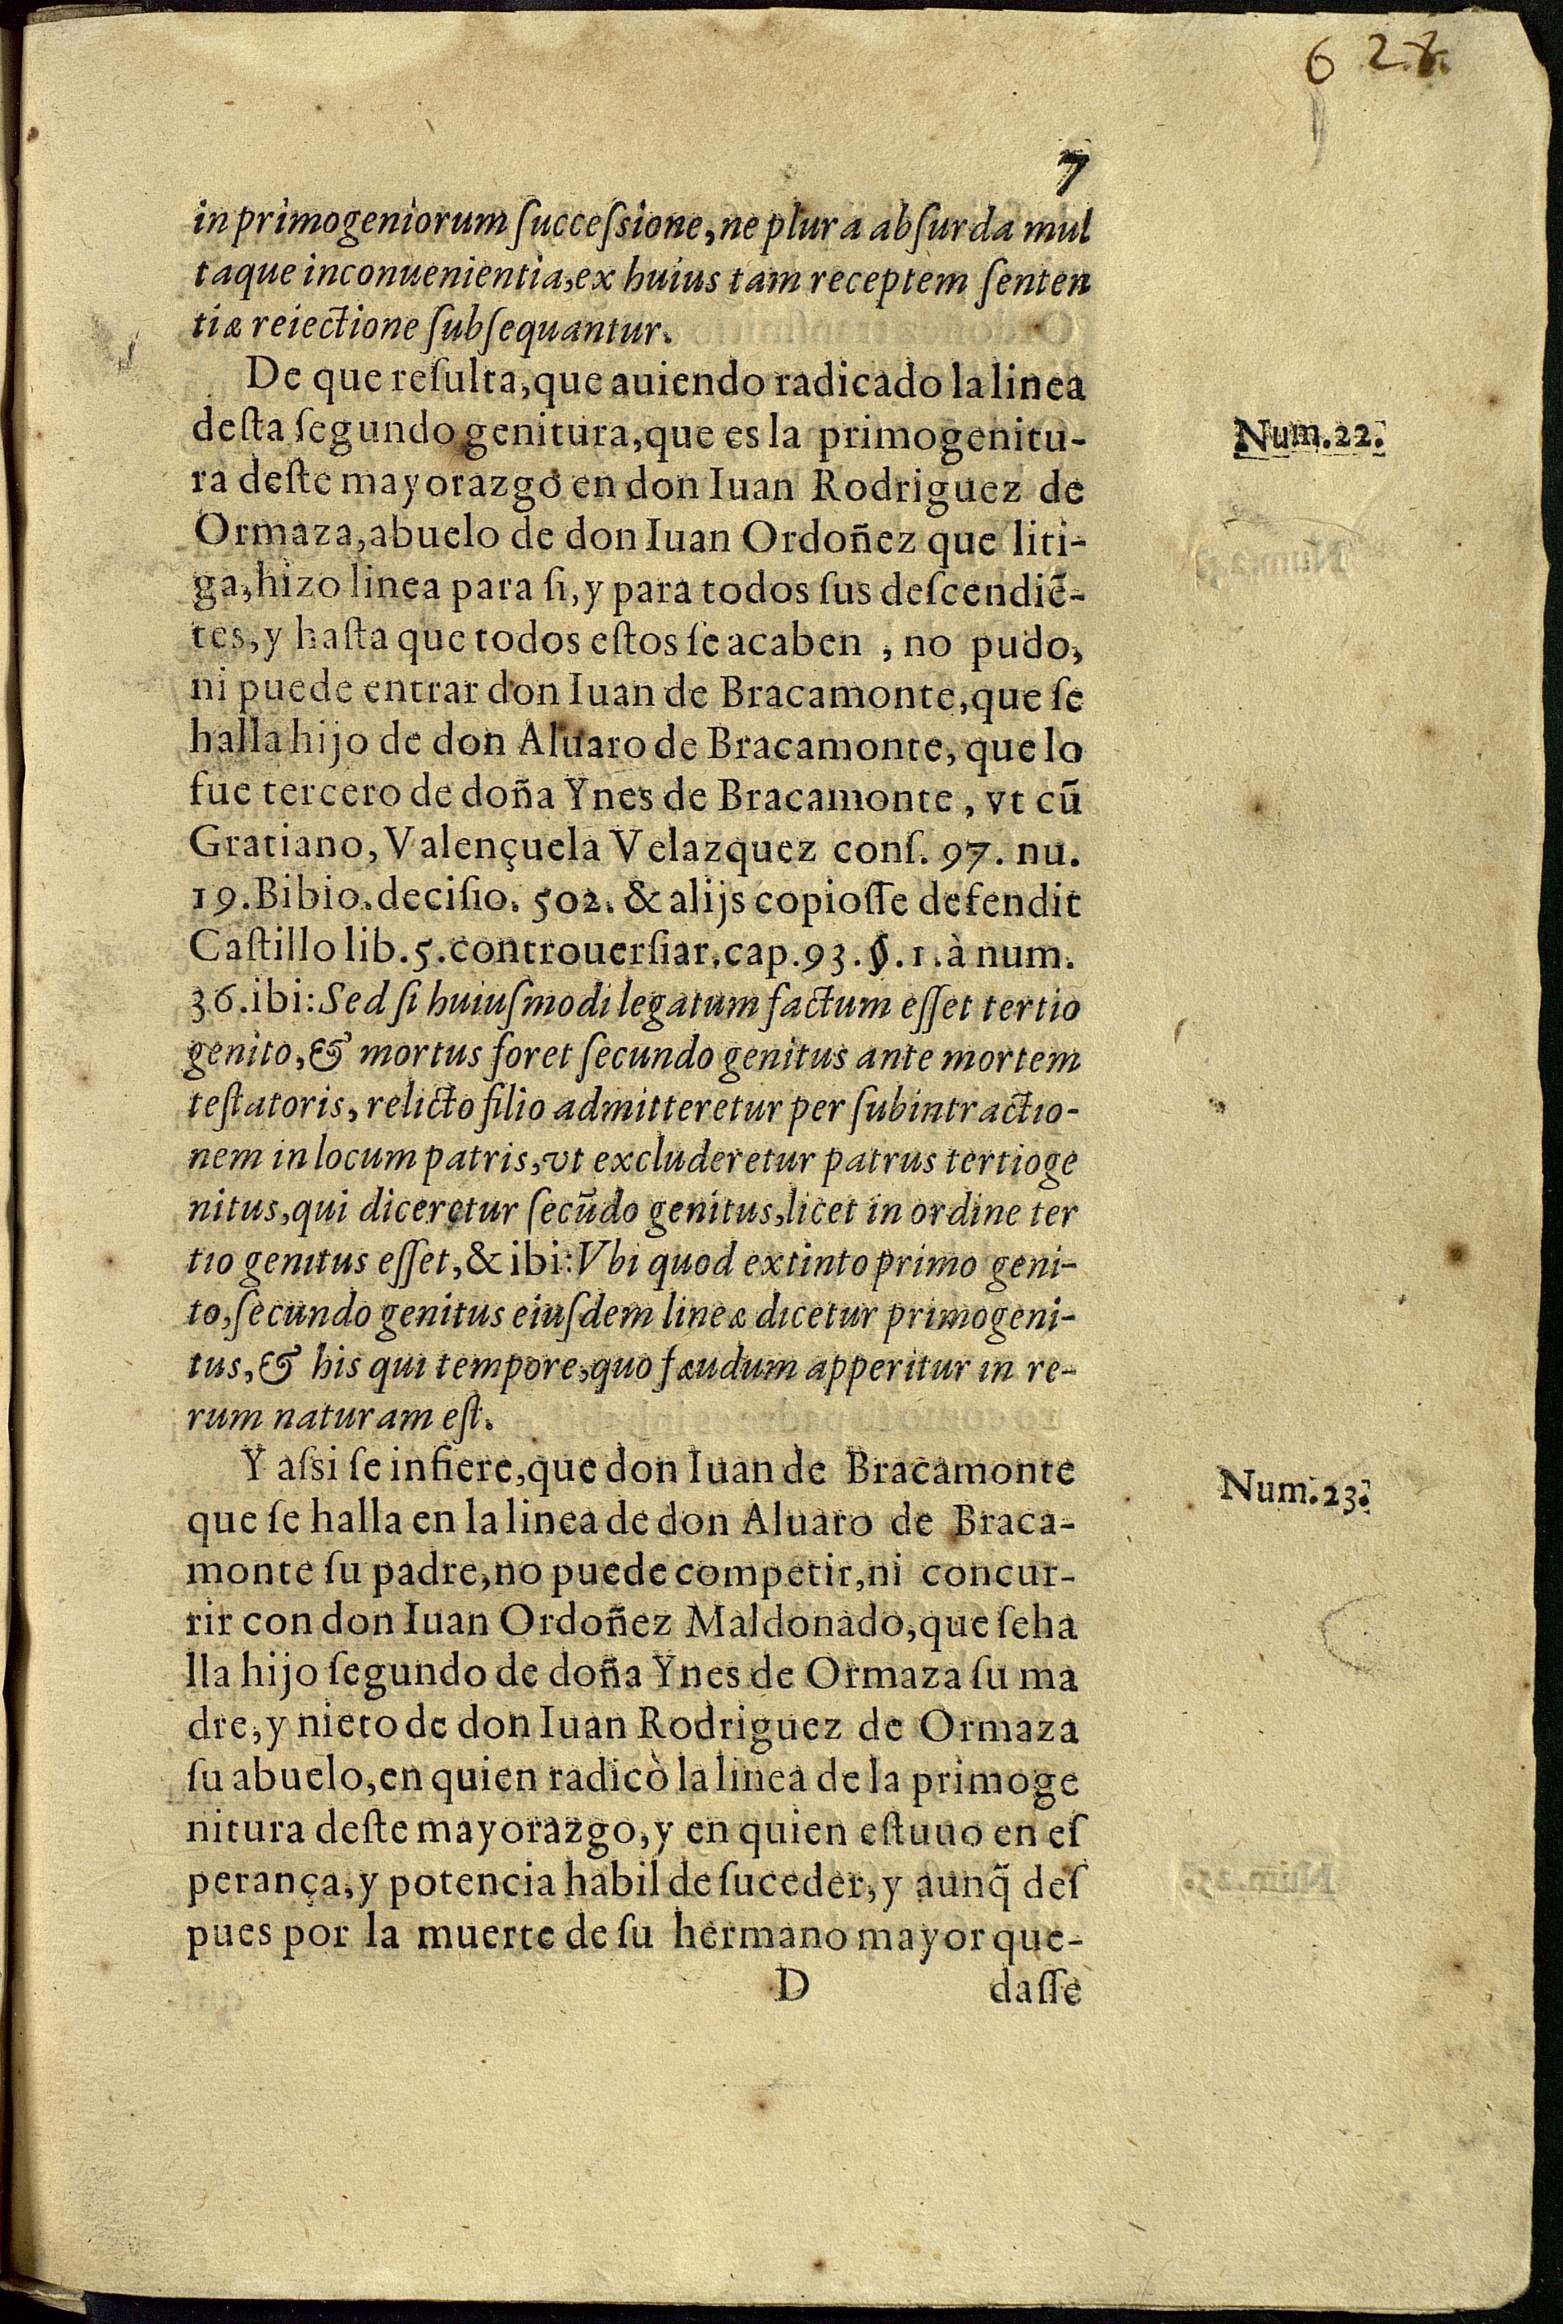 628.
7
in primogeniorum ſucceſsione, ne plura abſurda mul
taque inconuenientia, ex huius tam receptem ſenten
tiæ reiectione ſubſequantur.
De que reſulta, que auiendo radicado la linea
deſta ſegundo genitura, que es la primogenitu-
Num. 22.
ra deſte mayorazgo en don Iuan Rodriguez de
Ormaza, abuelo de don Iuan Ordoñez que liti-
ga, hizo linea para ſi, y para todos ſus deſcendiẽ-
tes, y haſta que todos eſtos ſe acaben, no pudo,
ni puede entrar don Iuan de Bracamonte, que ſe
halla hijo de don Aluaro de Bracamonte, que lo
fue tercero de doña Ynes de Bracamonte, vt cũ
Gratiano, Valençuela Velazquez conſ. 97. nu.
19. Bibio. deciſio. 502. & alijs copioſſe defendit
Caſtillo lib. 5. controuerſiar. cap. 93. §. 1. à num.
36. ibi: Sed ſi huiuſmodi legatum factum eſſet tertio
genito, & mortus foret ſecundo genitus ante mortem
teſtatoris, relicto filio admitteretur per ſubintractio-
nem in locum patris, vt excluderetur patrus tertioge
nitus, qui diceretur ſecũdo genitus, licet in ordine ter
tio genitus eſſet, & ibi: Vbi quod extinto primo geni-
to, ſecundo genitus eiuſdem lineæ dicetur primogeni-
tus, & his qui tempore, quo fæudum apperitur in re-
rum naturam eſt.
Y aſsi ſe infiere, que don Iuan de Bracamonte
Num. 23.
que ſe halla en la linea de don Aluaro de Braca-
monte ſu padre, no puede competir, ni concur-
rir con don Iuan Ordoñez Maldonado, que ſe ha
lla hijo ſegundo de doña Ynes de Ormaza ſu ma
dre, y nieto de don Iuan Rodriguez de Ormaza
ſu abuelo, en quien radicò la linea de la primoge
nitura deſte mayorazgo, y en quien eſtuuo en eſ
perança, y potencia habil de ſuceder, y aunq̃ deſ
pues por la muerte de ſu hermano mayor que-
D daſſe